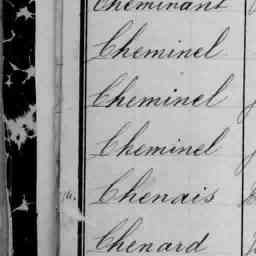 Cheminant
Cheminel
Cheminel
Cheminel
Chenais
Chenard